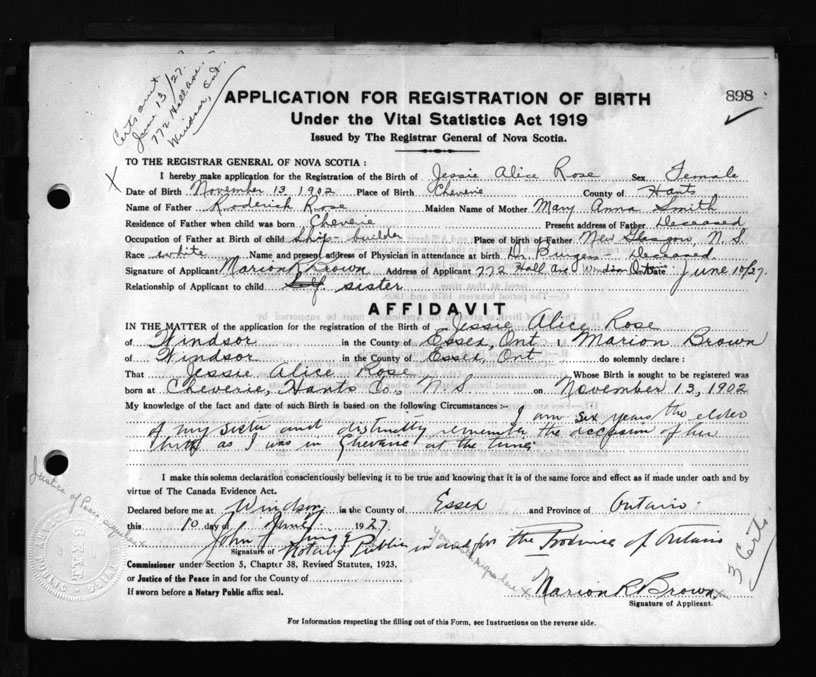 Certs sent
June 13/27.
772 Hall ave.
Windsor, Ont.
APPLICATION FOR REGISTRATION OF BIRTH
898
Under the Vital Statistics Act 1919
Issued by The Registrar General of Nova Scotia.
TO THE REGISTRAR GENERAL OF NOVA SCOTIA :
X
I hereby make application for the Registration of the Birth of Jessie Alice Rose Sex Female
Date of Birth November 13, 1902 Place of Birth Cheverie County of Hants
Name of Father Roderick Rose Maiden Name of Mother Mary Anna Smith
Residence of Father when child was born Cheverie Present address of Father Deceased
Occupation of Father at Birth of child Ship-builder Place of birth of Father New Glasgow, N.S.
Race white Name and present address of Physician in attendance at birth Dr Burgess - Deceased
Signature of Applicant Marion R Brown Address of Applicant 772 Hall Ave Windsor Ont Date June 10/27.
Relationship of Applicant to child Self sister
AFFIDAVIT
IN THE MATTER of the application for the registration of the Birth of Jessie Alice Rose
of Windsor in the County of Essex, Ont I, Marion Brown
of Windsor in the County of Essex Ont do solemnly declare :
That Jessie Alice Rose Whose Birth is sought to be registered was
born at Cheverie, Hants Co., N.S. on November 13, 1902
My knowledge of the fact and date of such Birth is based on the following Circumstances :- I am six years the elder
of my sister and distinctly remember the occasion of her
birth as I was in Cheverie at the time.
I make this solemn declaration conscientiously believing it to be true and knowing that it is of the same force and effect as if made under oath and by
virtue of The Canada Evidence Act.
Justice of Peace
Declared before me at Windsor in the County of Essex and Province of Ontario
this 10 day of June 1927.
John J
Signature of Notary Public in and for the Province of Ontario
SEAL
Commissioner under Section 5, Chapter 38, Revised Statutes, 1923.
or Justice of the Peace in and for the County of
If sworn before a Notary Public affix seal.
X Marion R Brown.
Signature of Applicant.
3 Certs
For Information respecting the filling out of this Form, see Instructions on the reverse side.